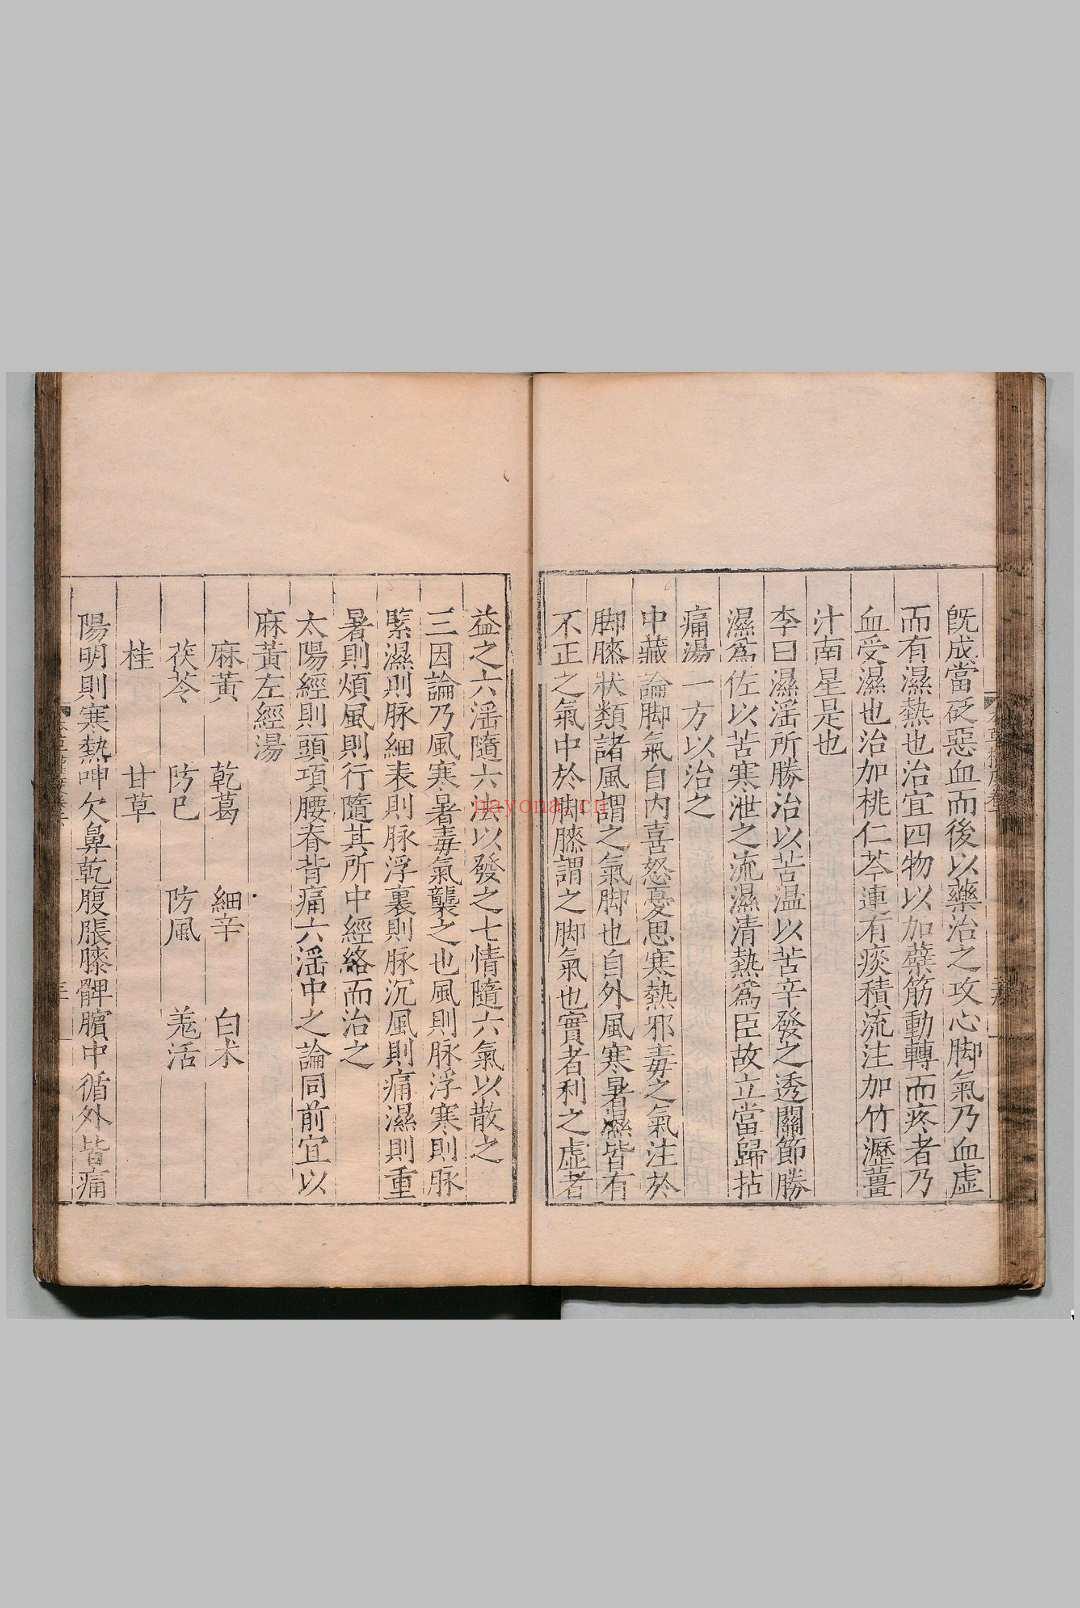 旣成當砭惡血而後以藥治之攻心脚氣乃血虛
而有濕熱也治宜四物以加蘗筋動轉而疼者乃
血受濕也治加桃仁芩連有痰積流注加竹瀝薑
汁南星是也
李曰濕滛所勝治以苦温以苦辛發之透關節勝
濕爲佐以苦寒泄之流濕清熱爲臣故立當歸拈
痛湯一方以治之
中藏論脚氣自内喜怒憂思寒熱邪毒之氣注於
脚膝狀類諸風謂之氣脚也自外風寒暑濕皆有
不正之氣中於脚膝謂之脚氣也實者利之虛者
益之六滛隨六法以發之七情隨六氣以散之
三因論乃風寒暑毒氣襲之也風則脉浮寒則脉
緊濕則脉細表則脉浮裏則脉沉風則痛濕則重
暑則煩風則行隨其所中經絡而治之
太陽經則頭項腰脊背痛六滛中之論同前宜以
麻黃左經湯
麻黃 乾葛 細辛 白朮
茯苓 防已 防風 羗活
桂 甘草
陽明則寒熱呻欠鼻乾腹脹膝髀臏中循外皆痛
nayona.cn